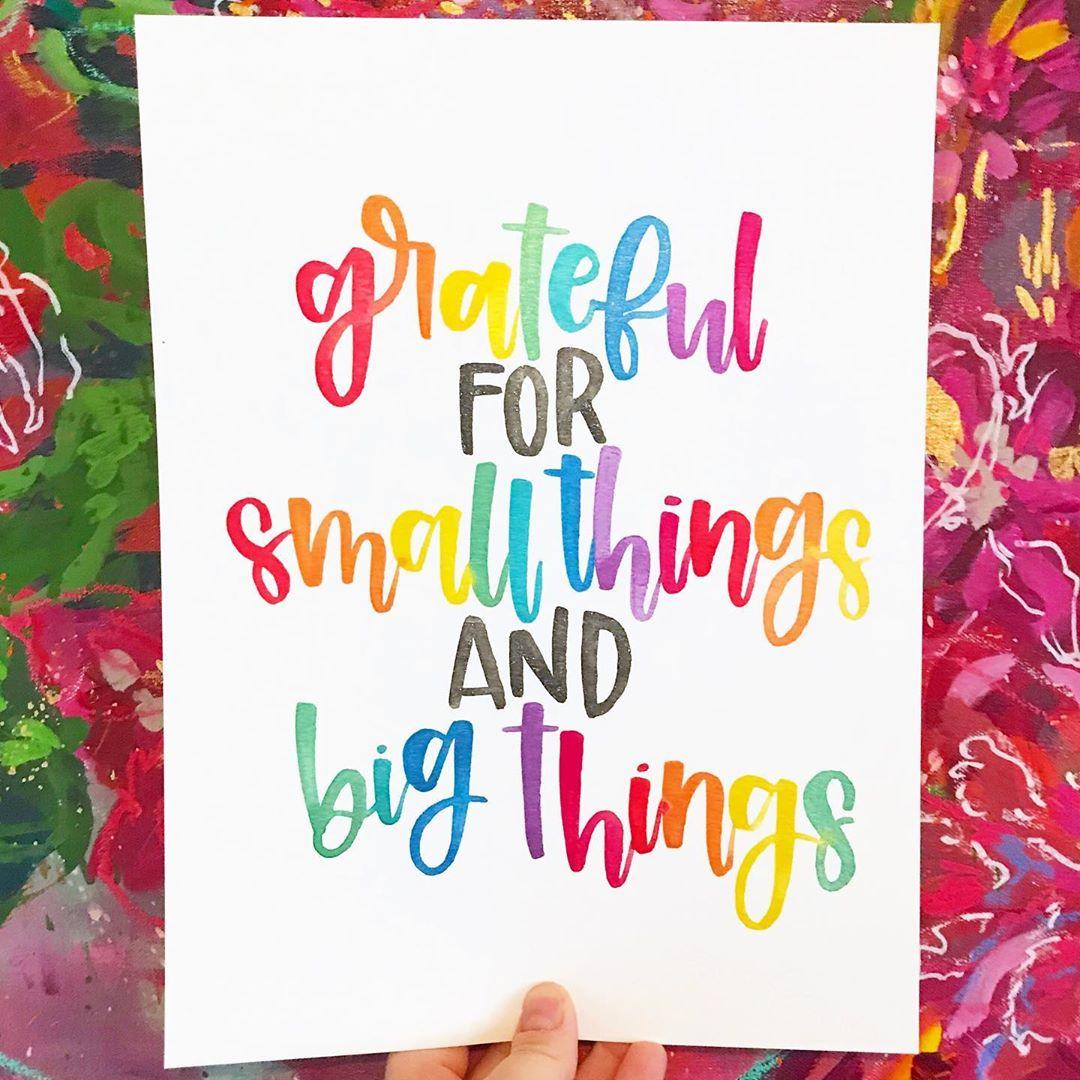 grateful
FOR
small things
AND
big things